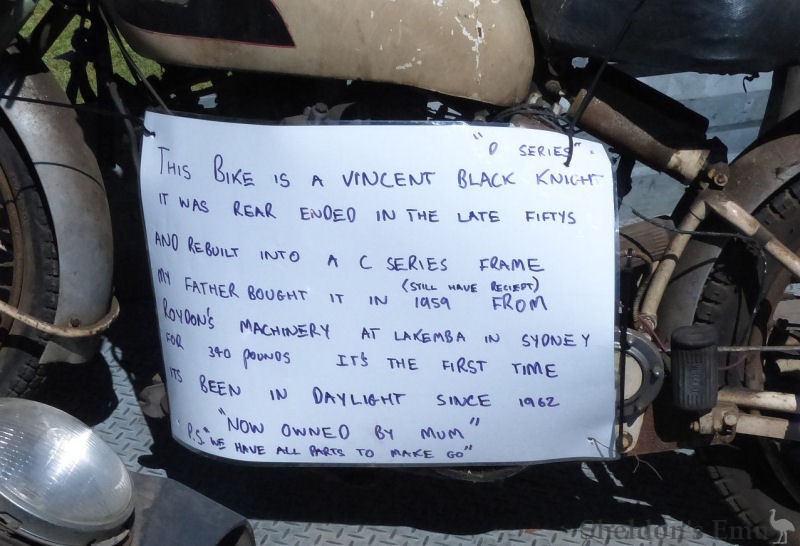 "D SERIES".
THIS BIKE IS A VINCENT BLACK KNIGHT
IT WAS REAR ENDED IN THE LATE FIFTYS
AND REBUILT INTO A C SERIES FRAME
(STILL HAVE RECIEPT)
MY FATHER BOUGHT IT IN 1959 FROM
ROYDON'S MACHINERY AT LAKEMBA IN SYDNEY
FOR 340 POUNDS IT'S THE FIRST TIME
ITS BEEN IN DAYLIGHT SINCE 1962
"NOW OWNED BY MUM"
P.S "WE HAVE ALL PARTS TO MAKE GO"
Sheldon's Emu